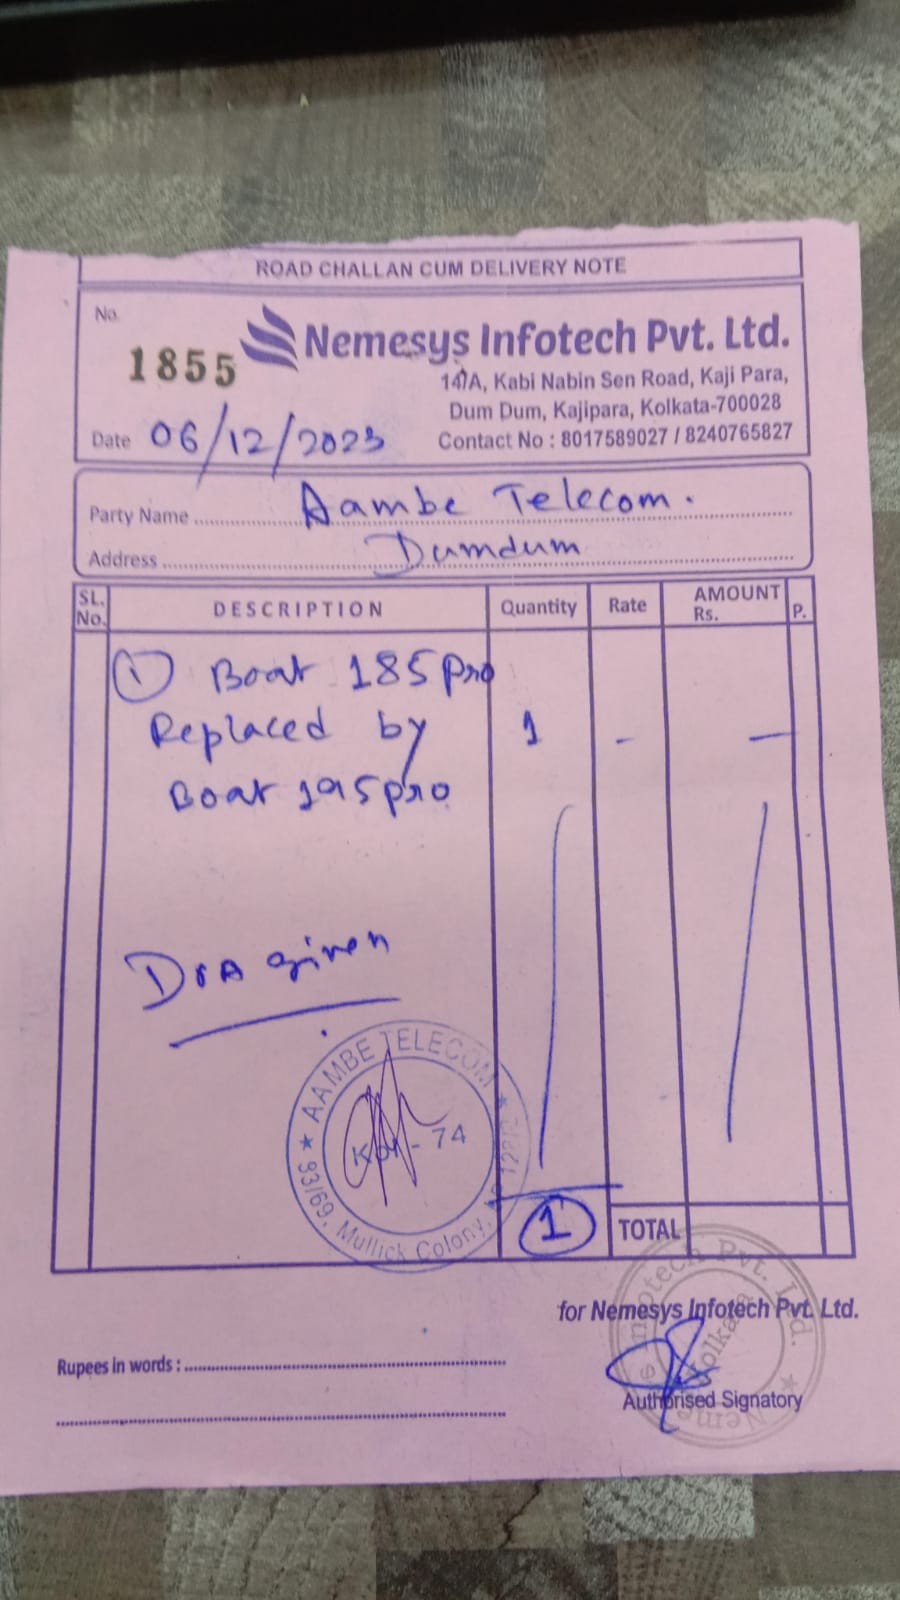 ROAD CHALLAN CUM DELIVERY NOTE
No.
1855
Nemesys Infotech Pvt. Ltd.
14/A, Kabi Nabin Sen Road, Kaji Para,
Dum Dum, Kajipara, Kolkata-700028
Date 06/12/2023
Contact No : 8017589027 / 8240765827
Party Name Aambe Telecom.
Address Dumdum
SL. No. DESCRIPTION Quantity Rate AMOUNT Rs. P.
① Boat 185 pro
Replaced by 1 - -
Boat 195 pro
DOA given
★ AAMBE TELECOM ★
93/69, Mullick Colony,
Kol - 74
1 TOTAL
for Nemesys Infotech Pvt. Ltd.
Nemesys Infotech Pvt. Ltd. ★
Kolkata
Rupees in words :
Authorised Signatory